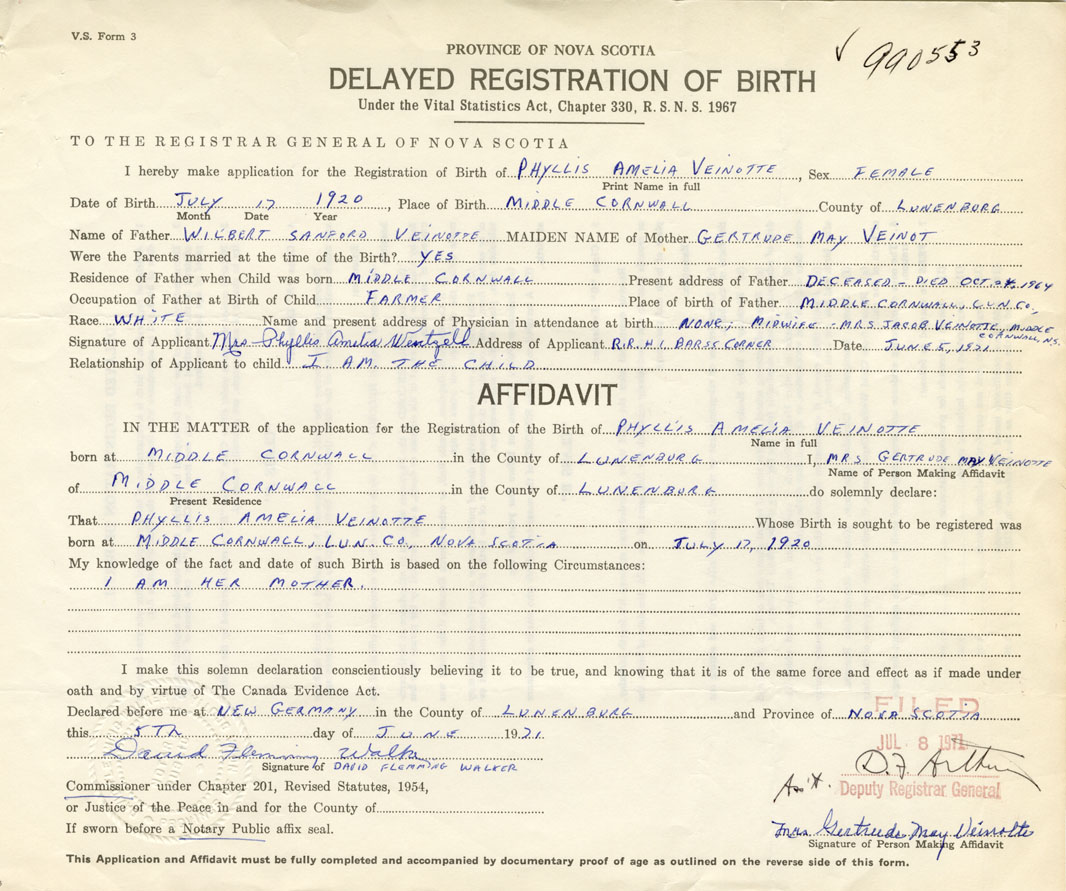 V.S. Form 3
990553
PROVINCE OF NOVA SCOTIA
DELAYED REGISTRATION OF BIRTH
Under the Vital Statistics Act, Chapter 330, R.S.N.S. 1967
TO THE REGISTRAR GENERAL OF NOVA SCOTIA
I hereby make application for the Registration of Birth of PHYLLIS AMELIA VEINOTTE, Sex FEMALE
Print Name in full
Date of Birth JULY 17 1920, Place of Birth MIDDLE CORNWALL County of LUNENBURG
Month Date Year
Name of Father WILBERT SANFORD VEINOTTE MAIDEN NAME of Mother GERTRUDE MAY VEINOT
Were the Parents married at the time of the Birth? YES
Residence of Father when Child was born MIDDLE CORNWALL Present address of Father DECEASED - DIED OCT 24, 1964
Occupation of Father at Birth of Child FARMER Place of birth of Father MIDDLE CORNWALL, LUN. CO.,
Race WHITE Name and present address of Physician in attendance at birth NONE; MIDWIFE - MRS JACOB VEINOTTE, MIDDLE CORNWALL, N.S.
Signature of Applicant Mrs. Phyllis Amelia Wentzell Address of Applicant R.R.#1. BARSS CORNER Date JUNE 5, 1971
Relationship of Applicant to child I AM THE CHILD
AFFIDAVIT
IN THE MATTER of the application for the Registration of the Birth of PHYLLIS AMELIA VEINOTTE
Name in full
born at MIDDLE CORNWALL in the County of LUNENBURG I, MRS GERTRUDE MAY VEINOTTE
Name of Person Making Affidavit
of MIDDLE CORNWALL in the County of LUNENBURG do solemnly declare:
Present Residence
That PHYLLIS AMELIA VEINOTTE Whose Birth is sought to be registered was
born at MIDDLE CORNWALL, LUN. CO., NOVA SCOTIA on JULY 17, 1920
My knowledge of the fact and date of such Birth is based on the following Circumstances:
I AM HER MOTHER.
I make this solemn declaration conscientiously believing it to be true, and knowing that it is of the same force and effect as if made under
oath and by virtue of The Canada Evidence Act.
Declared before me at NEW GERMANY in the County of LUNENBURG and Province of NOVA SCOTIA
FILED
this 5TH day of JUNE 1971
JUL 8 1971
David Flemming Walker
Signature of DAVID FLEMMING WALKER
D.F. Arthur
Commissioner under Chapter 201, Revised Statutes, 1954,
Ass't. Deputy Registrar General
or Justice of the Peace in and for the County of
If sworn before a Notary Public affix seal.
Mrs. Gertrude May Veinotte
Signature of Person Making Affidavit
This Application and Affidavit must be fully completed and accompanied by documentary proof of age as outlined on the reverse side of this form.